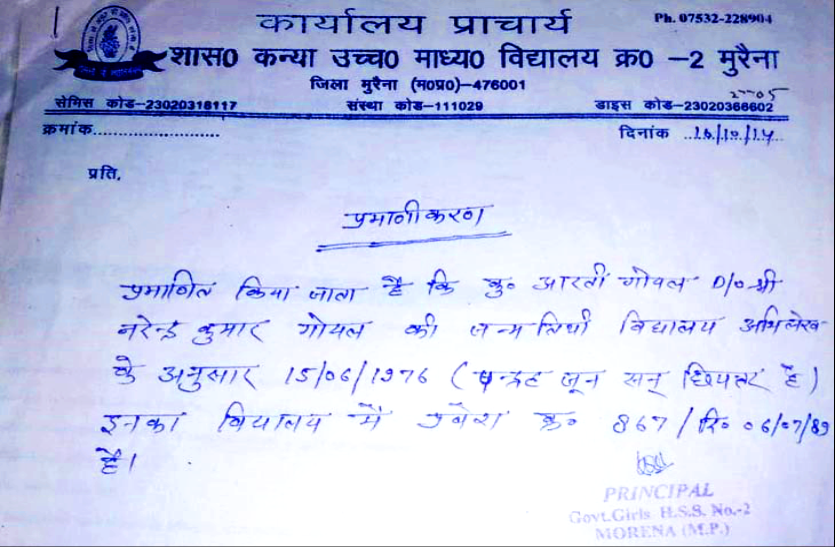 कार्यालय प्राचार्य
Ph. 07532-228904
शास0 कन्या उच्च0 माध्य0 विद्यालय क्र0 –2 मुरैना
जिला मुरैना (म0प्र0)–476001
सेमिस कोड–23020318117 संस्था कोड–111029 डाइस कोड–23020366602
क्रमांक............................ दिनांक ..16/10/14
प्रति,
प्रमाणीकरण
प्रमाणित किया जाता है कि कु० आरती गोयल D/o श्री
नरेन्द्र कुमार गोयल की जन्म तिथी विद्यालय अभिलेख
के अनुसार 15/06/1976 ( पन्द्रह जून सन् छियत्तर है )
इनका विद्यालय में प्रवेश क्र० 867/ दि० 06/07/89
है।
PRINCIPAL
Govt.Girls H.S.S. No.-2
MORENA (M.P.)